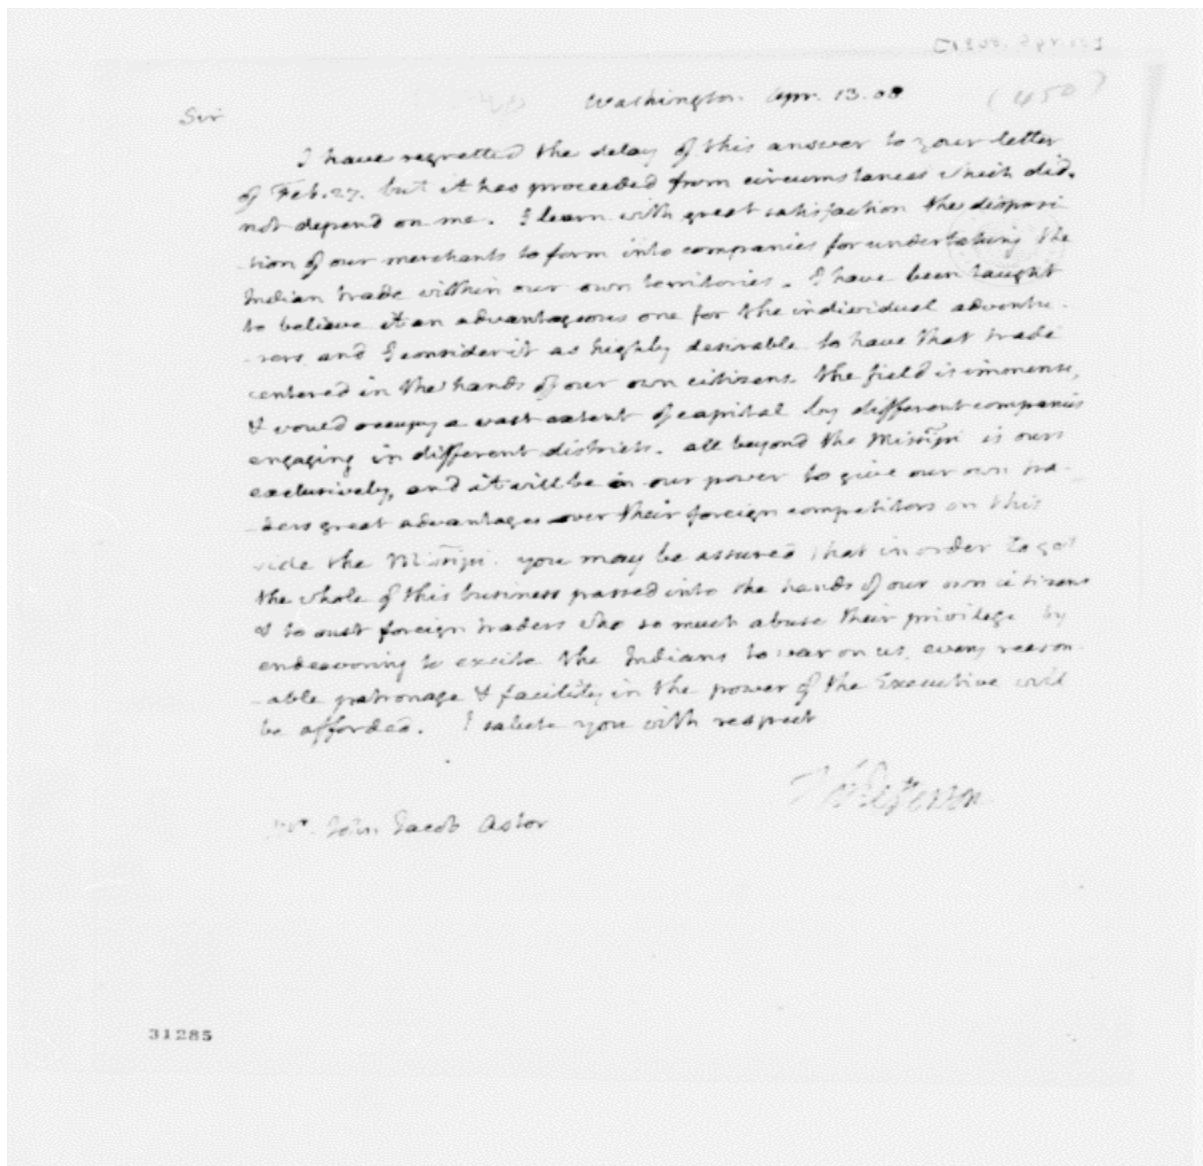 (450)
Washington. Apr. 13. 08
Sir
I have regretted the delay of this answer to your letter
of Feb. 27. but it has proceeded from circumstances which did
not depend on me. I learn with great satisfaction the disposi
-tion of our merchants to form into companies for undertaking the
Indian trade within our own territories. I have been taught
to believe it an advantageous one for the individual adventu-
-rers and I consider it as highly desirable to have that trade
centered in the hands of our own citizens. the field is immense,
& would occupy a vast extent of capital by different companies
engaging in different districts. all beyond the Missipi is ours
exclusively, and it will be in our power to give our own tra-
-ders great advantages over their foreign competitors on this
side the Missipi. you may be assured that in order to get
the whole of this business passed into the hands of our own citizens
& to oust foreign traders who so much abuse their privilege by
endeavoring to excite the Indians to war on us, every reason-
-able patronage & facility in the power of the Executive will
be afforded. I salute you with respect
Th: Jefferson
Mr. John Jacob Astor
31285